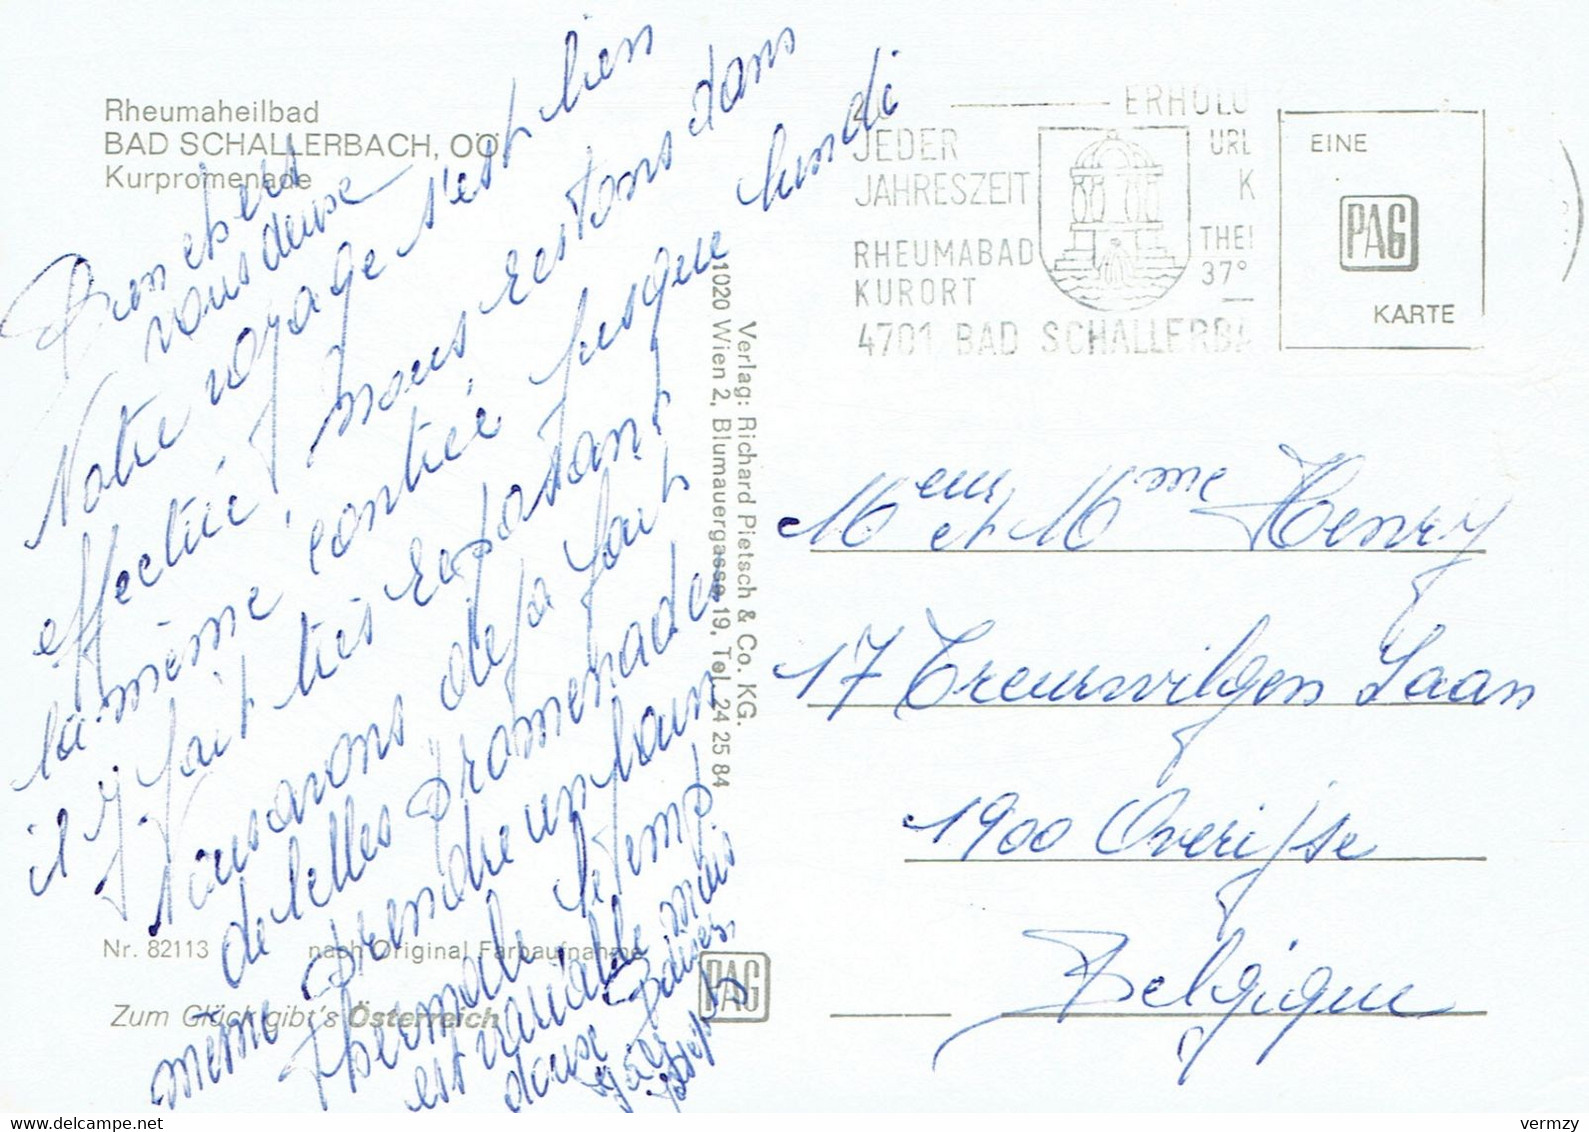 Rheumaheilbad
BAD SCHALLERBACH, OÖ
Kurpromenade
Bien chers
Notre voyage s'est bien
effectué, nous restons dans
la même contrée jusque lundi
il y fait très reposant
Nous avons déjà fait
de belles promenades
même prendre un bain
thermal. Le temps
est variable mais
Nr. 82113
nach Original Farbaufnahme
Zum Glück gibt's Österreich
PAG
Verlag: Richard Pietsch & Co. KG.
1020 Wien 2, Blumauergasse 19, Tel. 24 25 84
ERHOLU
JEDER
JAHRESZEIT
URL
K
RHEUMABAD
KURORT
THE
37°
4701 BAD SCHALLERBA
EINE
PAG
KARTE
Meur et Mme Henry
17 Treurwilgen Laan
1900 Overijse
Belgique
vermzy